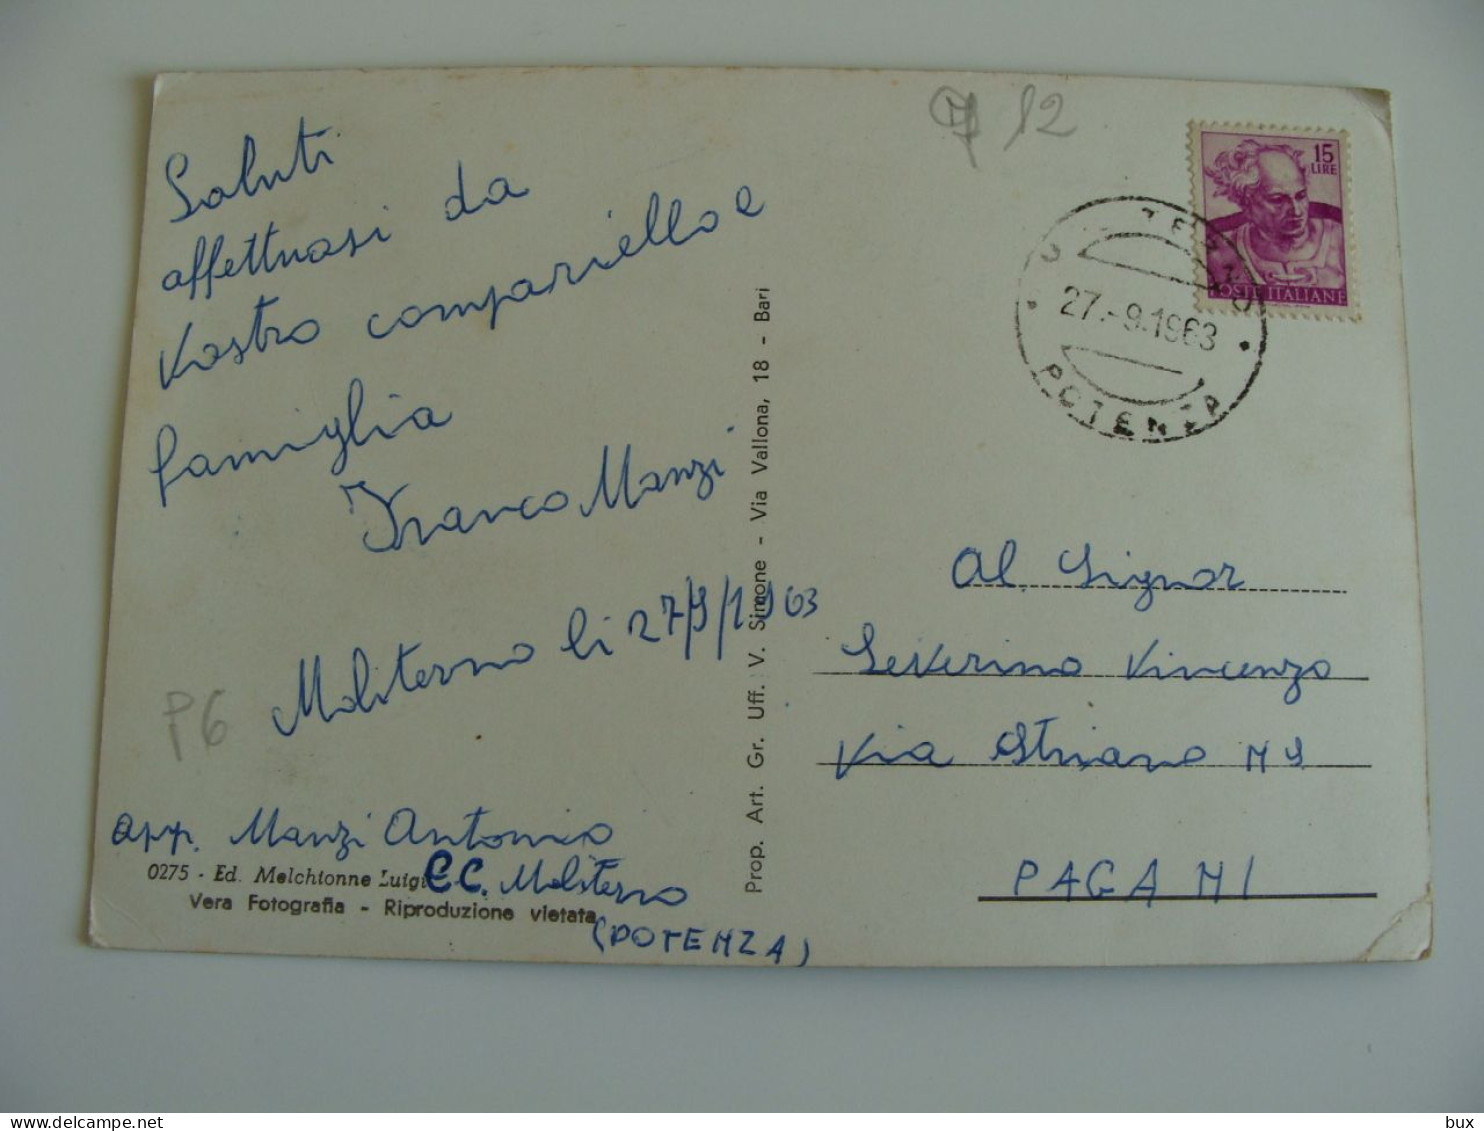 Saluti
affettuosi da
Vostro compariello e
famiglia
Franco Manzi
Moliterno li 27/9/1963
P6
app. Manzi Antonio
CC. Moliterno
(POTENZA)
0275 - Ed. Melchionne Luigi
Vera Fotografia - Riproduzione vietata
Prop. Art. Gr. Uff. V. Simone - Via Vallona, 18 - Bari
12
15
LIRE
POSTE ITALIANE
27.-9.1963
POTENZA
Al Signor
Severino Vincenzo
Via Striano N 9
PAGANI
bux